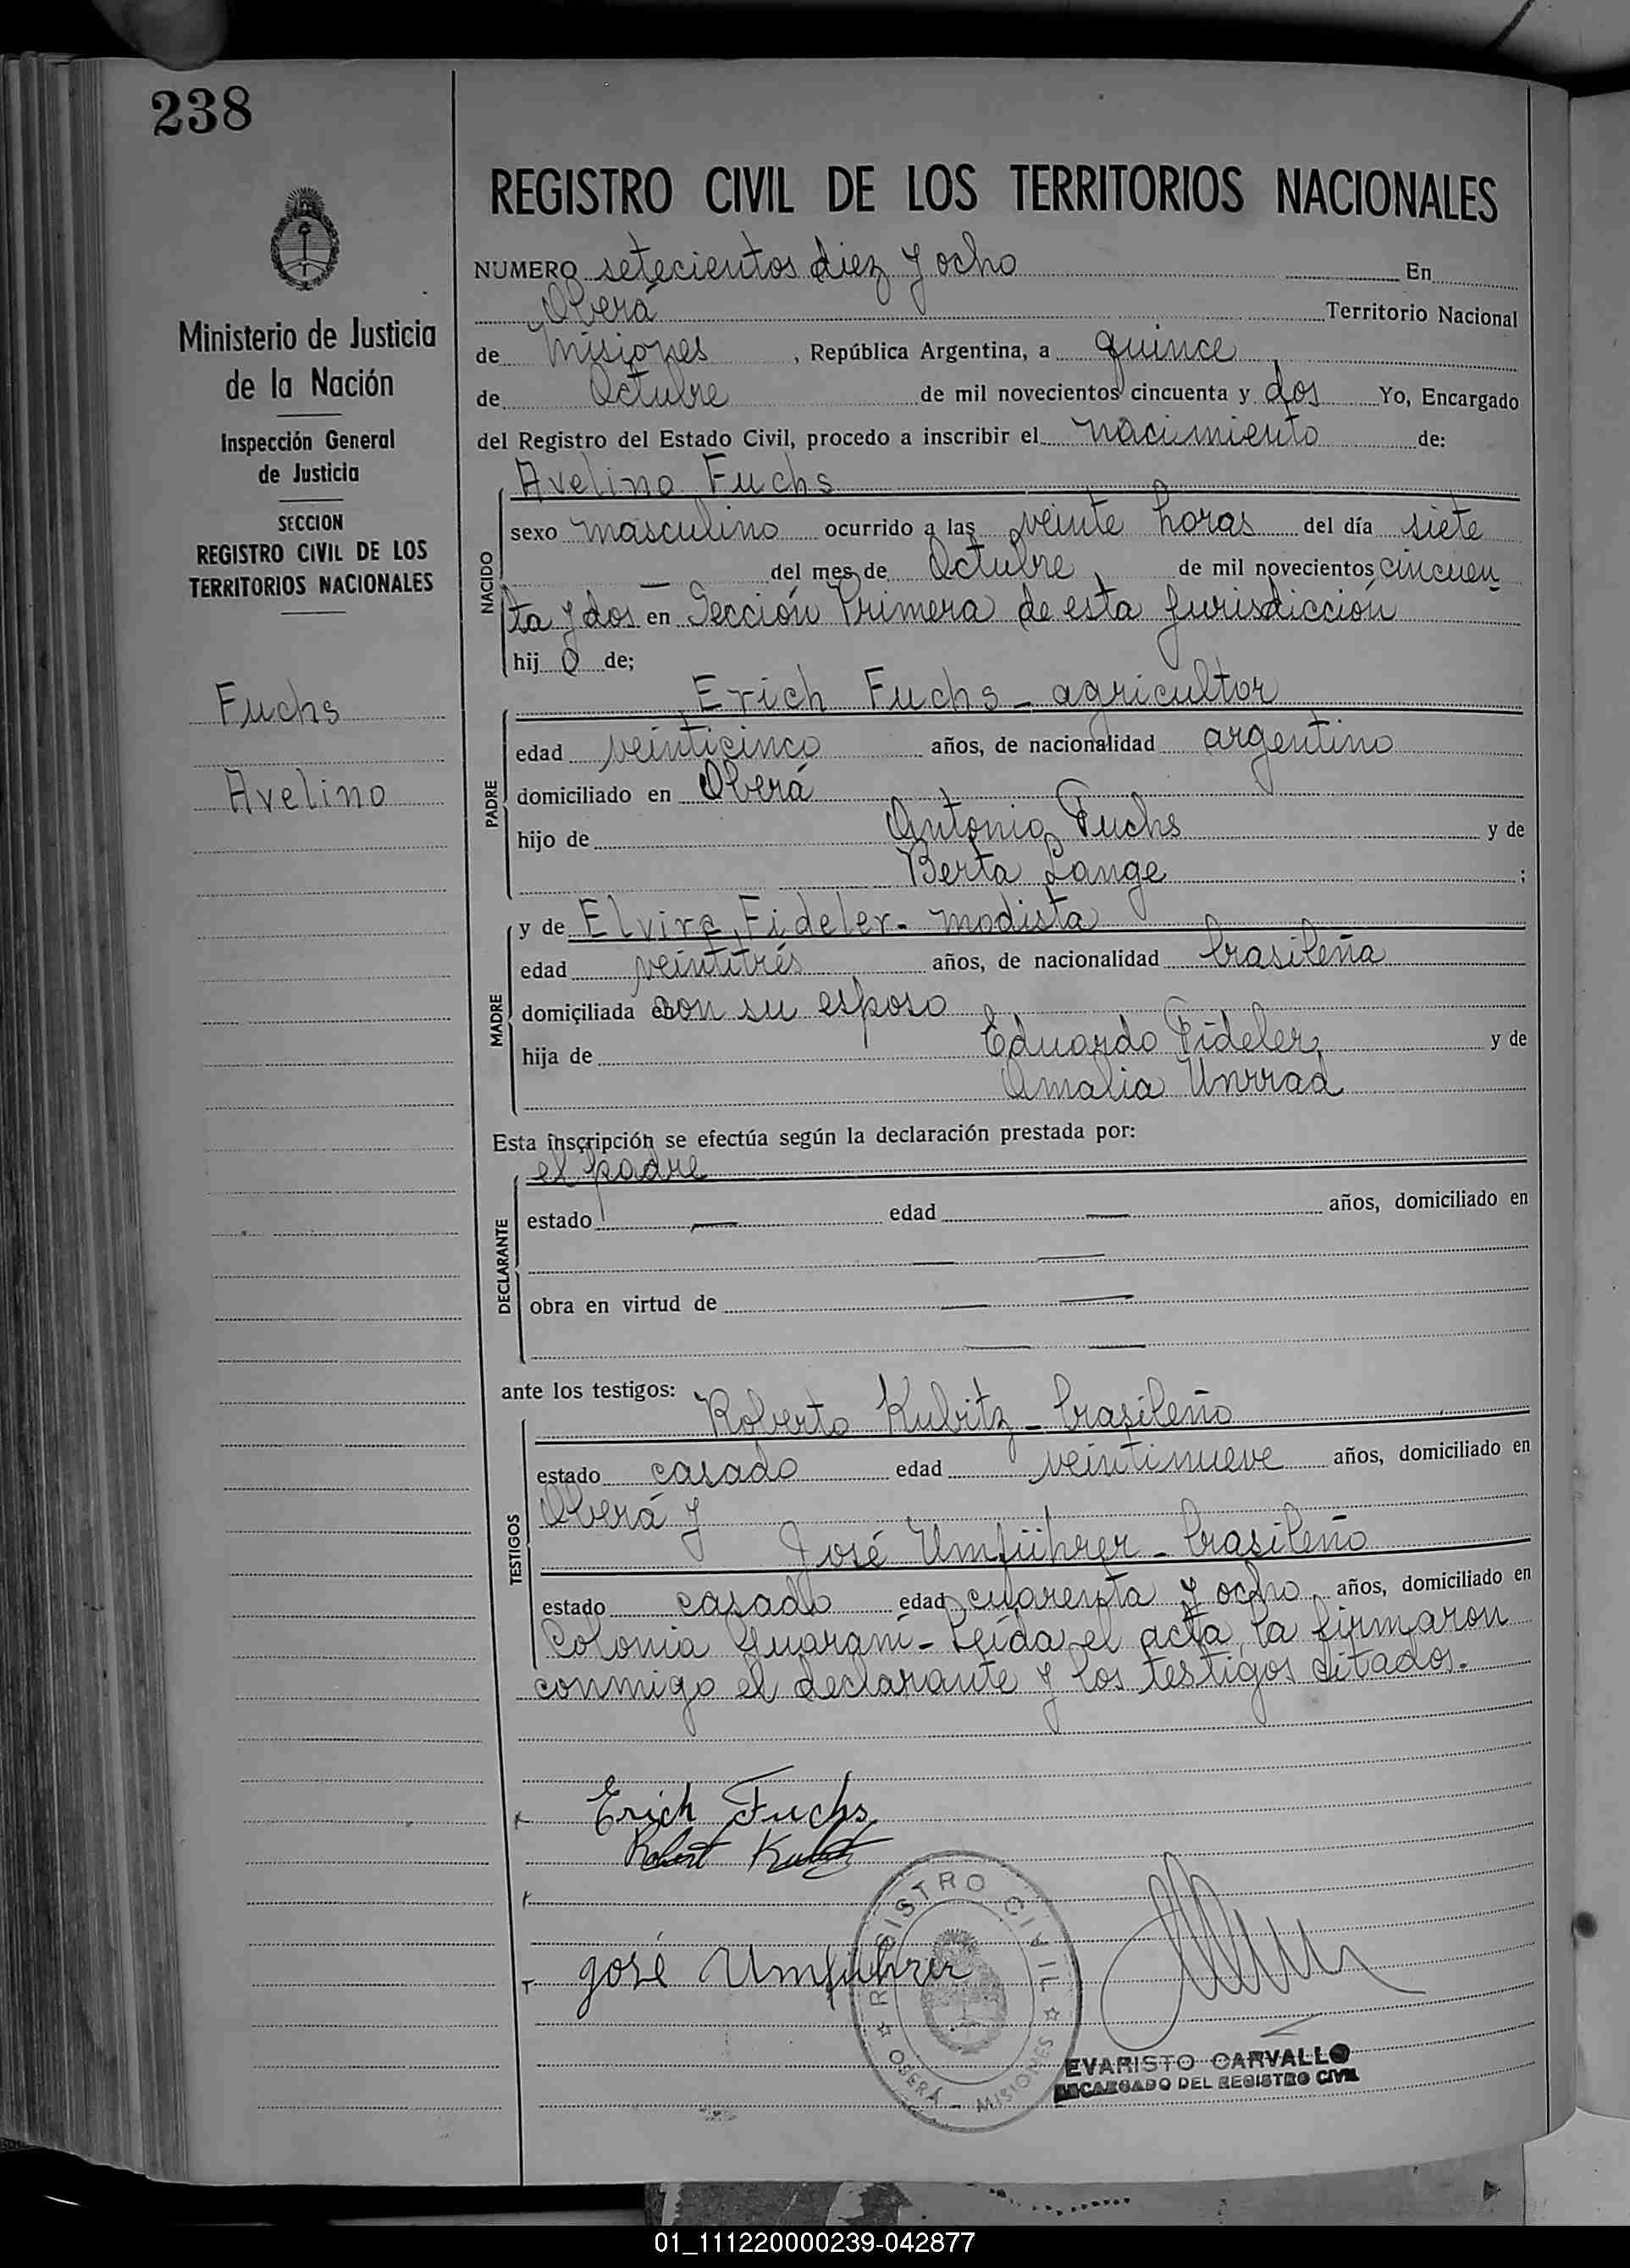 238
REGISTRO CIVIL DE LOS TERRITORIOS NACIONALES
Ministerio de Justicia
de la Nación
Inspección General
de Justicia
SECCION
REGISTRO CIVIL DE LOS
TERRITORIOS NACIONALES
Fuchs
Avelino
NUMERO setecientos diez y ocho En
Oberá Territorio Nacional
de Misiones, República Argentina, a quince
de Octubre de mil novecientos cincuenta y dos Yo, Encargado
del Registro del Estado Civil, procedo a inscribir el nacimiento de:
NACIDO
Avelino Fuchs
sexo masculino ocurrido a las veinte horas del día siete
— del mes de Octubre de mil novecientos cincuen
ta y dos en Sección Primera de esta Jurisdicción
hij o de;
PADRE
Erich Fuchs - agricultor
edad veinticinco años, de nacionalidad argentino
domiciliado en Oberá
hijo de Antonio Fuchs y de
Berta Lange ;
MADRE
y de Elvira Fideler - modista
edad veintitrés años, de nacionalidad brasileña
domiciliada con su esposo
hija de Eduardo Fideler y de
Amalia Unrrad
Esta inscripción se efectúa según la declaración prestada por:
DECLARANTE
el padre
estado — edad — años, domiciliado en
— —
obra en virtud de — —
— —
ante los testigos:
TESTIGOS
Roberto Kubitz - brasileño
estado casado edad veintinueve años, domiciliado en
Oberá y
José Umführer - brasileño
estado casado edad cuarenta y ocho años, domiciliado en
Colonia Guaraní - Leída el acta, la firmaron
conmigo el declarante y los testigos citados.-
Erich Fuchs
Robert Kubitz
José Umführer
REGISTRO CIVIL
OBERÁ - MISIONES
EVARISTO CARVALLO
ENCARGADO DEL REGISTRO CIVIL
01_111220000239-042877